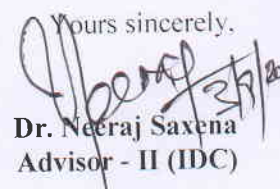 Yours sincerely,
Dr. Neeraj Saxena
Advisor - II (IDC)